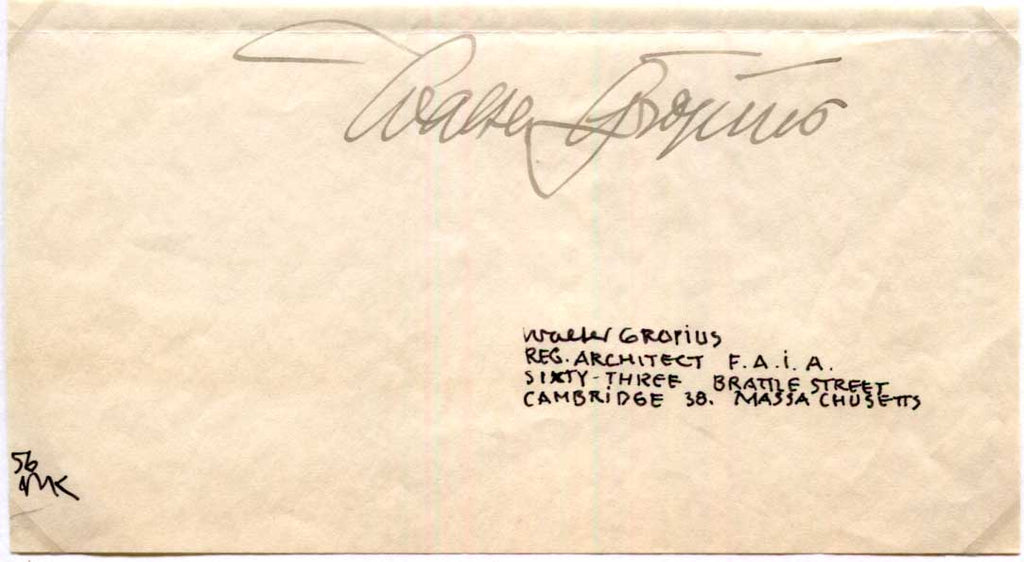 Walter Gropius
Walter Gropius
REG. ARCHITECT F.A.i.A.
SIXTY-THREE BRATTLE STREET
CAMBRiDGE 38. MASSACHUSETTS
56
MK